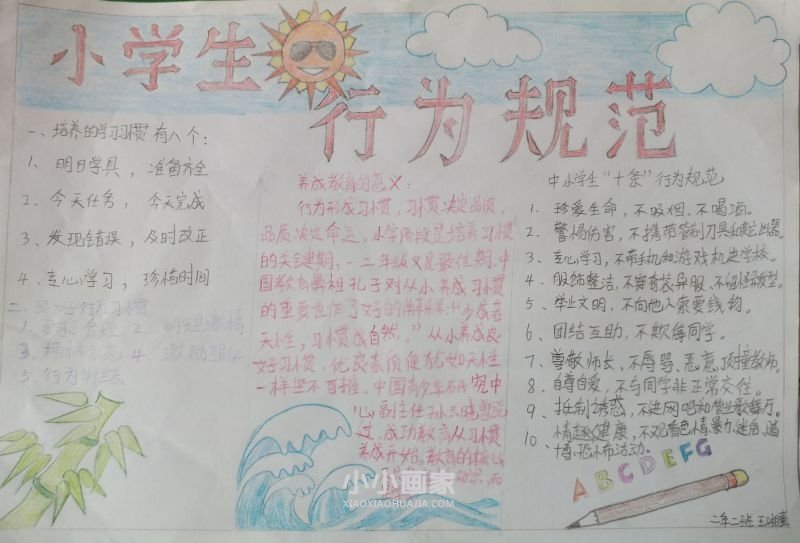 小学生
行为规范
一、培养的学习习惯有八个：
1、明日学具，准备齐全
2、今天任务，今天完成
3、发现错误，及时改正
4、专心学习，珍惜时间
二、良好行为习惯
1. 要求合理 2. 明理激情
3. 榜样示范 4. 激励强化
5. 行为训练
养成教育的意义：
行为形成习惯，习惯决定品质，
品质决定命运。小学阶段是培养习惯
的关键期，一二年级又是最佳期。中
国教育鼻祖孔子对从小养成习惯
的重要也作了好的解释："少成若
天性，习惯成自然。"从小养成良
好习惯，优良素质便犹如天生
一样坚不可摧。中国青少年研究中
心副主任孙云晓曾说
过，成功教育从习惯
养成开始。教育的核心
而
中小学生"十条"行为规范
1、珍爱生命，不吸烟、不喝酒。
2、警惕伤害，不携带管制刀具和突出凶器。
3、专心学习，不带手机和游戏机进学校。
4、服饰整洁，不穿奇装异服、不留怪发型。
5、举止文明，不向他人索要钱物。
6、团结互助，不欺侮同学。
7、尊敬师长，不辱骂、恶意顶撞教师。
8、自尊自爱，不与同学非正常交往。
9、抵制诱惑，不进网吧和营业歌舞厅。
10、情趣健康，不观看色情、暴力、迷信、赌
博、恐怖活动。
ABCDEFG
小小画家
XIAOXIAOHUAJIA.COM
二年二班 王湘